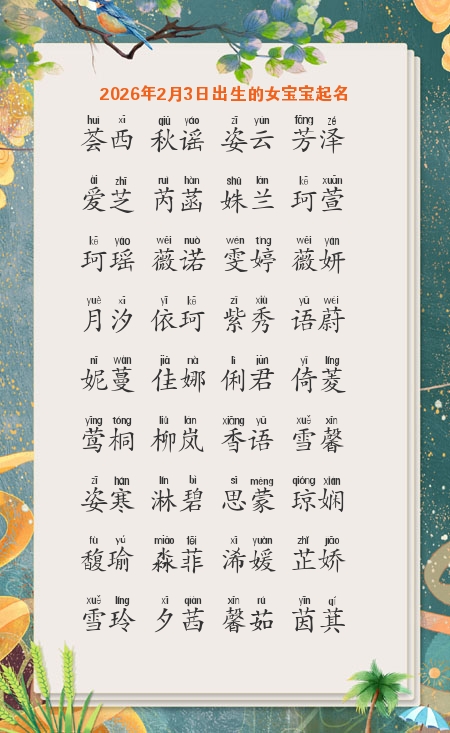 2026年2月3日出生的女宝宝起名
huì xī qiū yáo zī yún fāng zé
荟西 秋谣 姿云 芳泽
ài zhī ruì hàn shū lán kē xuān
爱芝 芮菡 姝兰 珂萱
kē yáo wēi nuò wén tíng wēi yán
珂瑶 薇诺 雯婷 薇妍
yuè xī yī kē zǐ xiù yǔ wèi
月汐 依珂 紫秀 语蔚
nī wàn jiā nà lì jūn yǐ líng
妮蔓 佳娜 俐君 倚菱
yīng tóng liǔ lán xiāng yǔ xuě xīn
莺桐 柳岚 香语 雪馨
zī hán lín bì sī méng qióng xián
姿寒 淋碧 思蒙 琼娴
fù yú miǎo fēi xī yuán zhǐ jiāo
馥瑜 淼菲 浠媛 芷娇
xuě líng xī qiàn xīn rú yīn qí
雪玲 夕茜 馨茹 茵萁